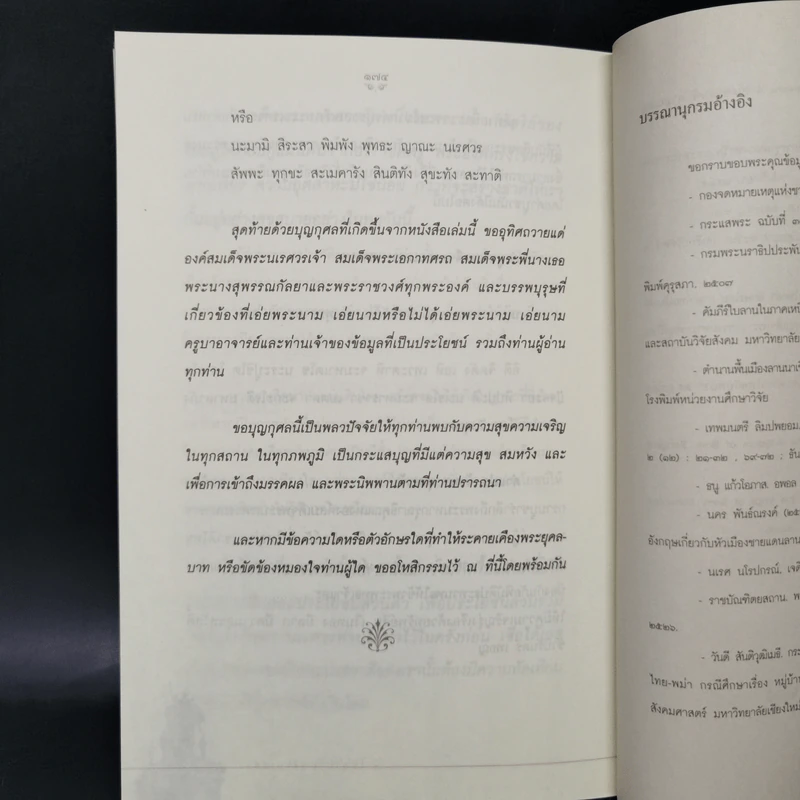 หรือ
นะมามิ สิระสา พิมพัง พุทธะ ญาณะ นเรศวร
สัพพะ ทุกขะ สะเมคารัง สินติทัง สุขะทัง สะทาติ
สุดท้ายด้วยบุญกุศลที่เกิดขึ้นจากหนังสือเล่มนี้ ขออุทิศถวายแด่
องค์สมเด็จพระนเรศวรเจ้า สมเด็จพระเอกาทศรถ สมเด็จพระพี่นางเธอ
พระนางสุพรรณกัลยาและพระราชวงศ์ทุกพระองค์ และบรรพบุรุษที่
เกี่ยวข้องที่เอ่ยพระนาม เอ่ยนามหรือไม่ได้เอ่ยพระนาม เอ่ยนาม
ครูบาอาจารย์และท่านเจ้าของข้อมูลที่เป็นประโยชน์ รวมถึงท่านผู้อ่าน
ทุกท่าน
ขอบุญกุศลนี้เป็นพลวปัจจัยให้ทุกท่านพบกับความสุขความเจริญ
ในทุกสถาน ในทุกภพภูมิ เป็นกระแสบุญที่มีแต่ความสุข สมหวัง และ
เพื่อการเข้าถึงมรรคผล และพระนิพพานตามที่ท่านปรารถนา
และหากมีข้อความใดหรือตัวอักษรใดที่ทำให้ระคายเคืองพระยุคล-
บาท หรือขัดข้องหมองใจท่านผู้ใด ขออโหสิกรรมไว้ ณ ที่นี้โดยพร้อมกัน
บรรณานุกรมอ้างอิง
ขอกราบขอบพระคุณข้อมู
- กองจดหมายเหตุแห่งชา
- กระแสพระ ฉบับที่ ๓
- กรมพระนราธิปประพัน
พิมพ์คุรุสภา, ๒๕๐๗
- คัมภีร์ใบลานในภาคเหนื
และสถาบันวิจัยสังคม มหาวิทยาลัย
- ตำนานพื้นเมืองลานนาเชี
โรงพิมพ์หน่วยงานศึกษาวิจัย
- เทพมนตรี ลิมปพยอม,
๒ (๑๒) : ๒๑-๓๒ , ๖๙-๓๒ ; ธัน
- ธนู แก้วโอภาส, อพอล
- นคร พันธ์ณรงค์ (๒๕
อังกฤษเกี่ยวกับหัวเมืองชายแดนลาน
- นเรศ นโรปกรณ์, เจดี
- ราชบัณฑิตยสถาน, พ
๒๕๒๖.
- วันดี สันติวุฒิเมธี. กระ
ไทย-พม่า กรณีศึกษาเรื่อง หมู่บ้าน
สังคมศาสตร์ มหาวิทยาลัยเชียงใหม่